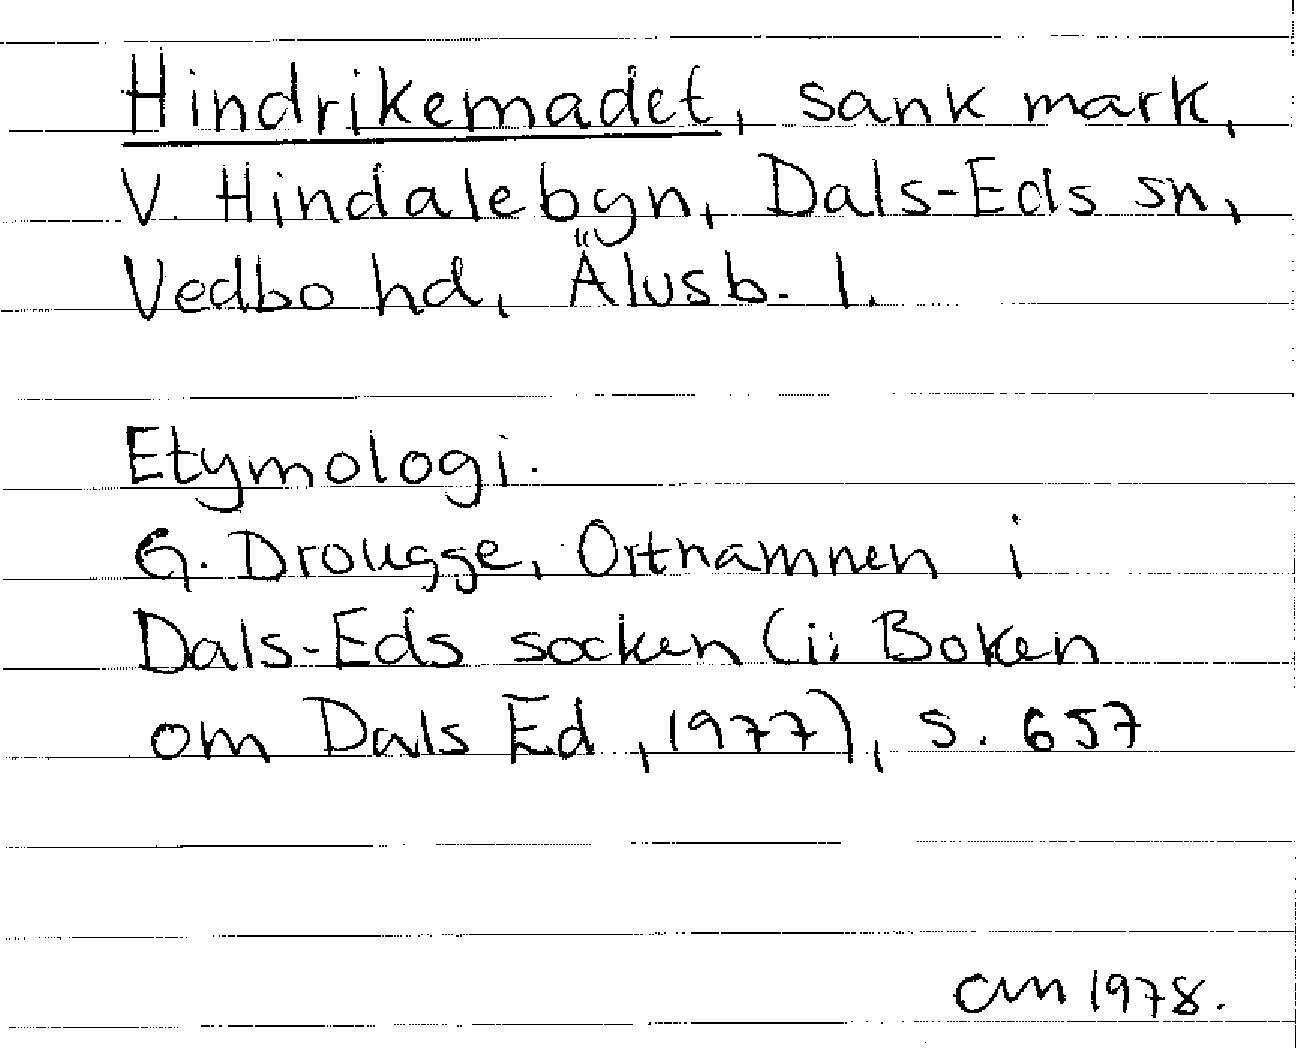 Hindrikemadet, sank mark,
V. Hindalebyn, Dals-Eds sn,
Vedbo hd, Älvsb. l.
Etymologi.
G. Drougge, Ortnamnen i
Dals-Eds socken (i: Boken
om Dals Ed, 1977), s. 657
am 1978.